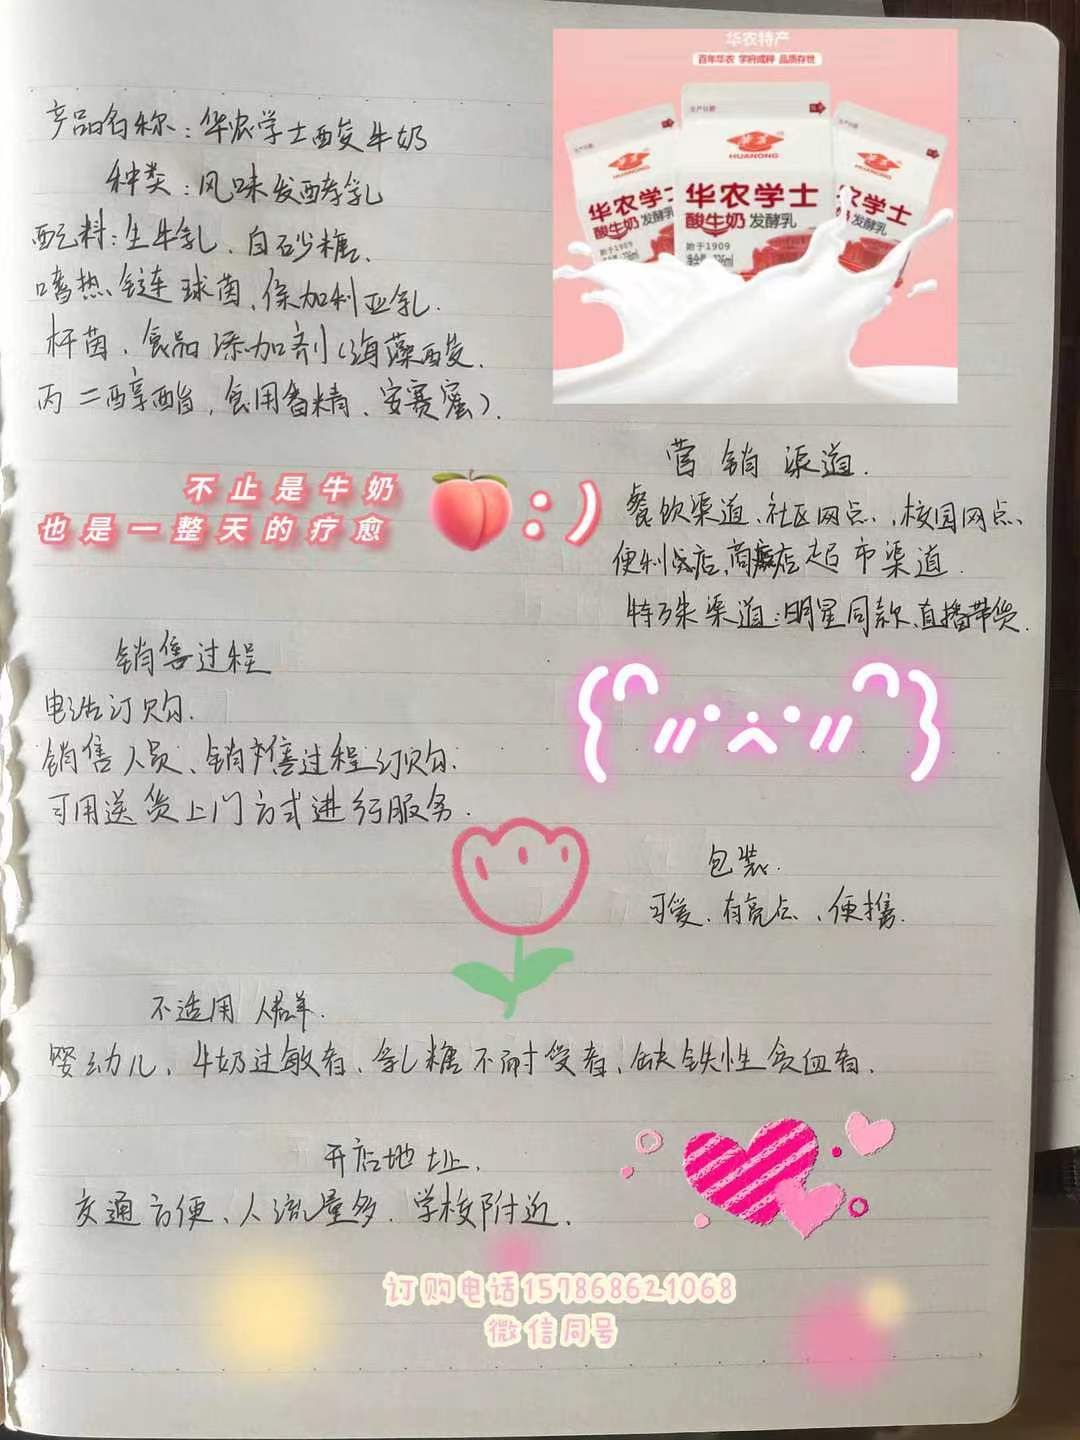 华农特产
百年华农 学府咸粹 品质存世
HUANONG
HUANONG
HUANONG
华农学士
酸牛奶 发酵乳
始于1909
华农学士
酸牛奶 发酵乳
始于1909
农学士
发酵乳
产品名称：华农学士酸牛奶
种类：风味发酵乳
配料：生牛乳、白砂糖、
嗜热链球菌、保加利亚乳
杆菌、食品添加剂（海藻酸
丙二醇酯，食用香精、安赛蜜）.
不止是牛奶
也是一整天的疗愈
:)
营销渠道.
餐饮渠道、社区网点、校园网点、
便利店、商店超市渠道.
特殊渠道：明星同款、直播带货.
销售过程
电话订购.
销售人员、销售过程订购.
可用送货上门方式进行服务.
包装.
可爱、有亮点、便携.
不适用人群.
婴幼儿、牛奶过敏者、乳糖不耐受者、缺铁性贫血者.
开店地址.
交通方便、人流量多、学校附近.
订购电话157868621068
微信同号